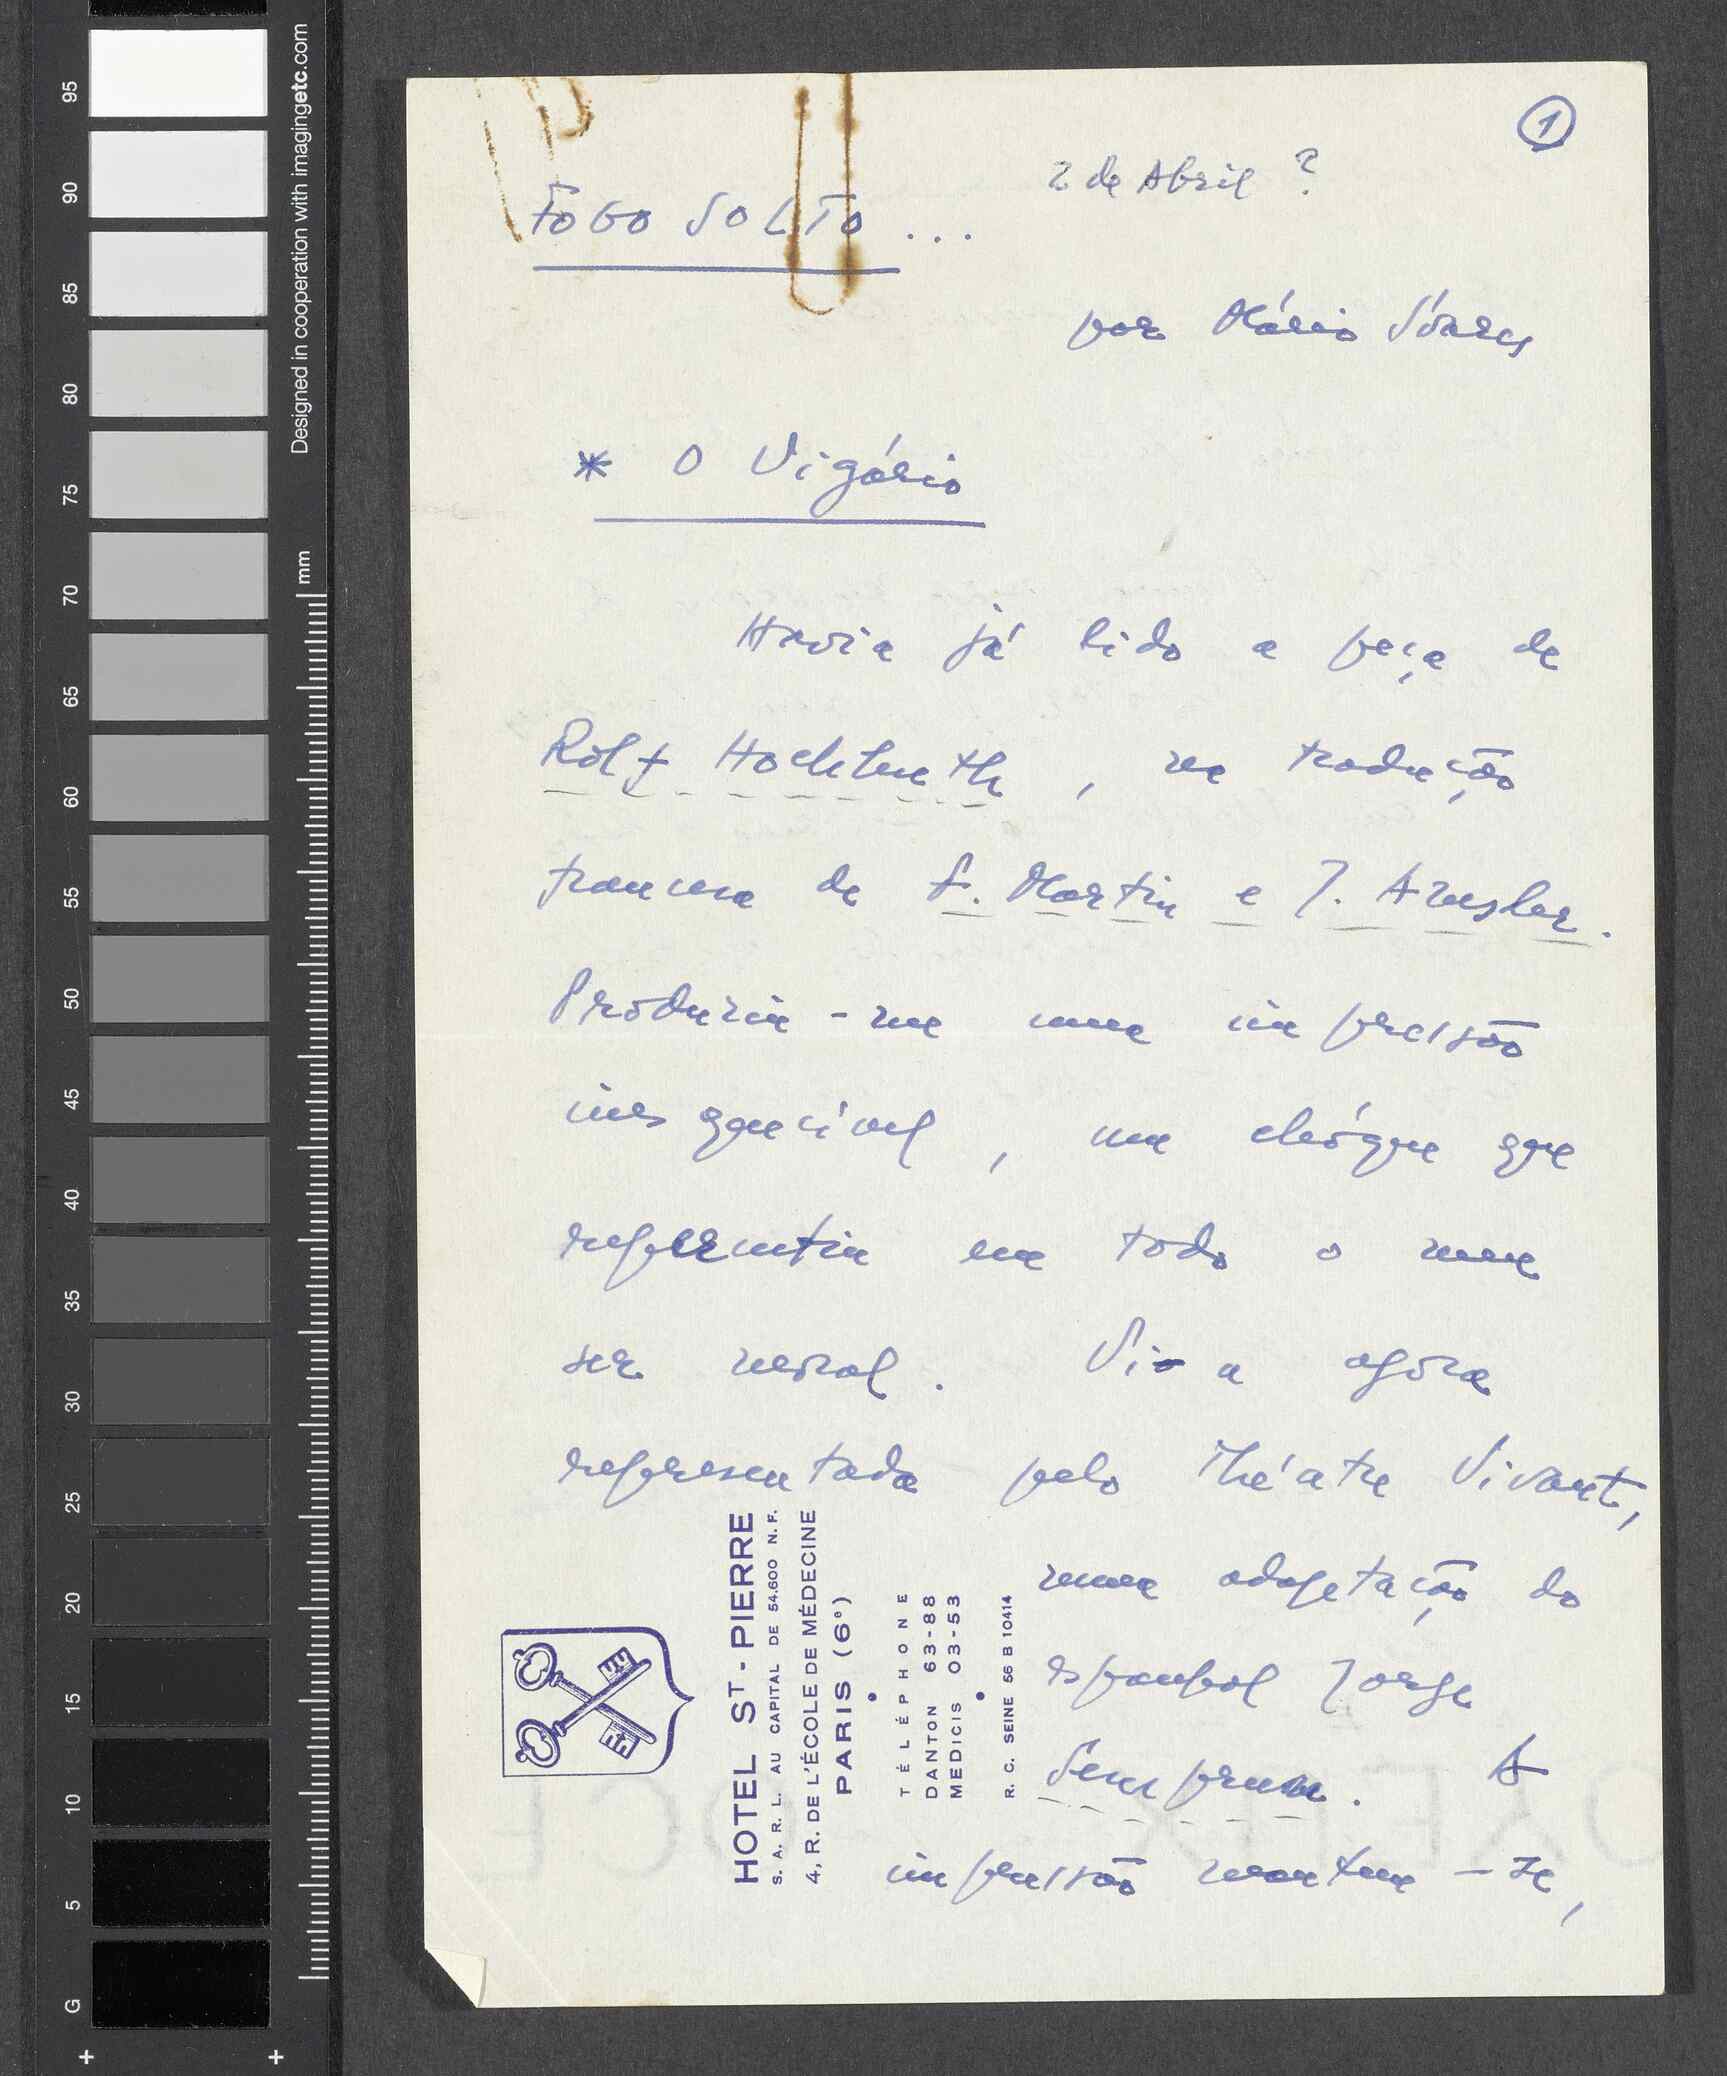 1
2 de Abril ?
FOGO SOLTO ...
por Mário Soares
* O Vigário
Havia já lido a peça de
Rolf Hochhuth, na tradução
francesa de F. Martin e J. Amsler.
Produziu-me uma impressão
inesquecível, um chóque que
repercutiu em todo o meu
ser moral. Vi-a agora
representada pelo Théatre Vivant,
numa adaptação do
espanhol Jorge
Semprun. A
impressão mantem-se,
HOTEL ST-PIERRE
S. A. R. L. AU CAPITAL DE 54.600 N. F.
4, R. DE L'ÉCOLE DE MÉDECINE
PARIS (6e)
TÉLÉPHONE
DANTON 63-88
MEDICIS 03-53
R. C. SEINE 56 B 10414
Designed in cooperation with imagingetc.com
mm
95
90
85
80
75
70
65
60
55
50
45
40
35
30
25
20
15
10
5
G